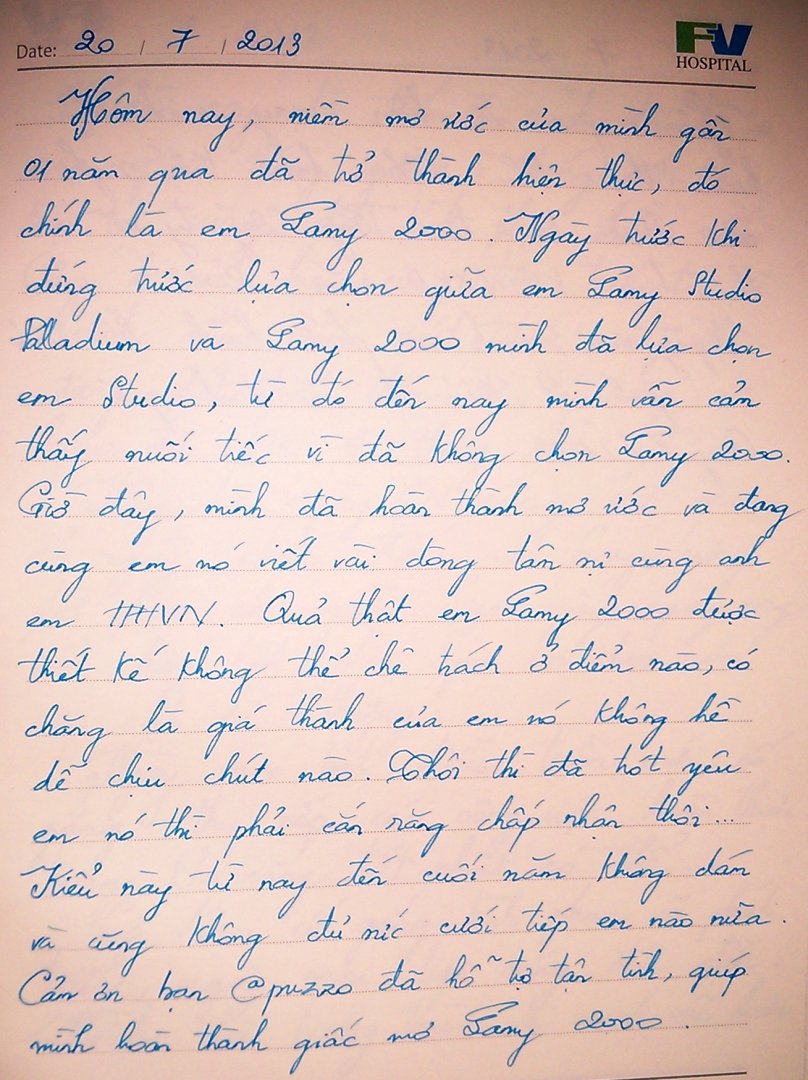 FV
HOSPITAL
Date: 20 / 7 / 2013
Hôm nay, niềm mơ ước của mình gần
01 năm qua đã trở thành hiện thực, đó
chính là em Lamy 2000. Ngày trước khi
đứng trước lựa chọn giữa em Lamy Studio
Palladium và Lamy 2000 mình đã lựa chọn
em Studio, từ đó đến nay mình vẫn cảm
thấy nuối tiếc vì đã không chọn Lamy 2000.
Giờ đây, mình đã hoàn thành mơ ước và đang
cùng em nó viết vài dòng tâm sự cùng anh
em HHVN. Quả thật em Lamy 2000 được
thiết kế không thể chê trách ở điểm nào, có
chăng là giá thành của em nó không hề
dễ chịu chút nào. Thôi thì đã trót yêu
em nó thì phải cắn răng chấp nhận thôi...
Kiểu này từ nay đến cuối năm không dám
và cũng không đủ sức cưới tiếp em nào nữa.
Cảm ơn bạn @puzzo đã hỗ trợ tận tình, giúp
mình hoàn thành giấc mơ Lamy 2000.